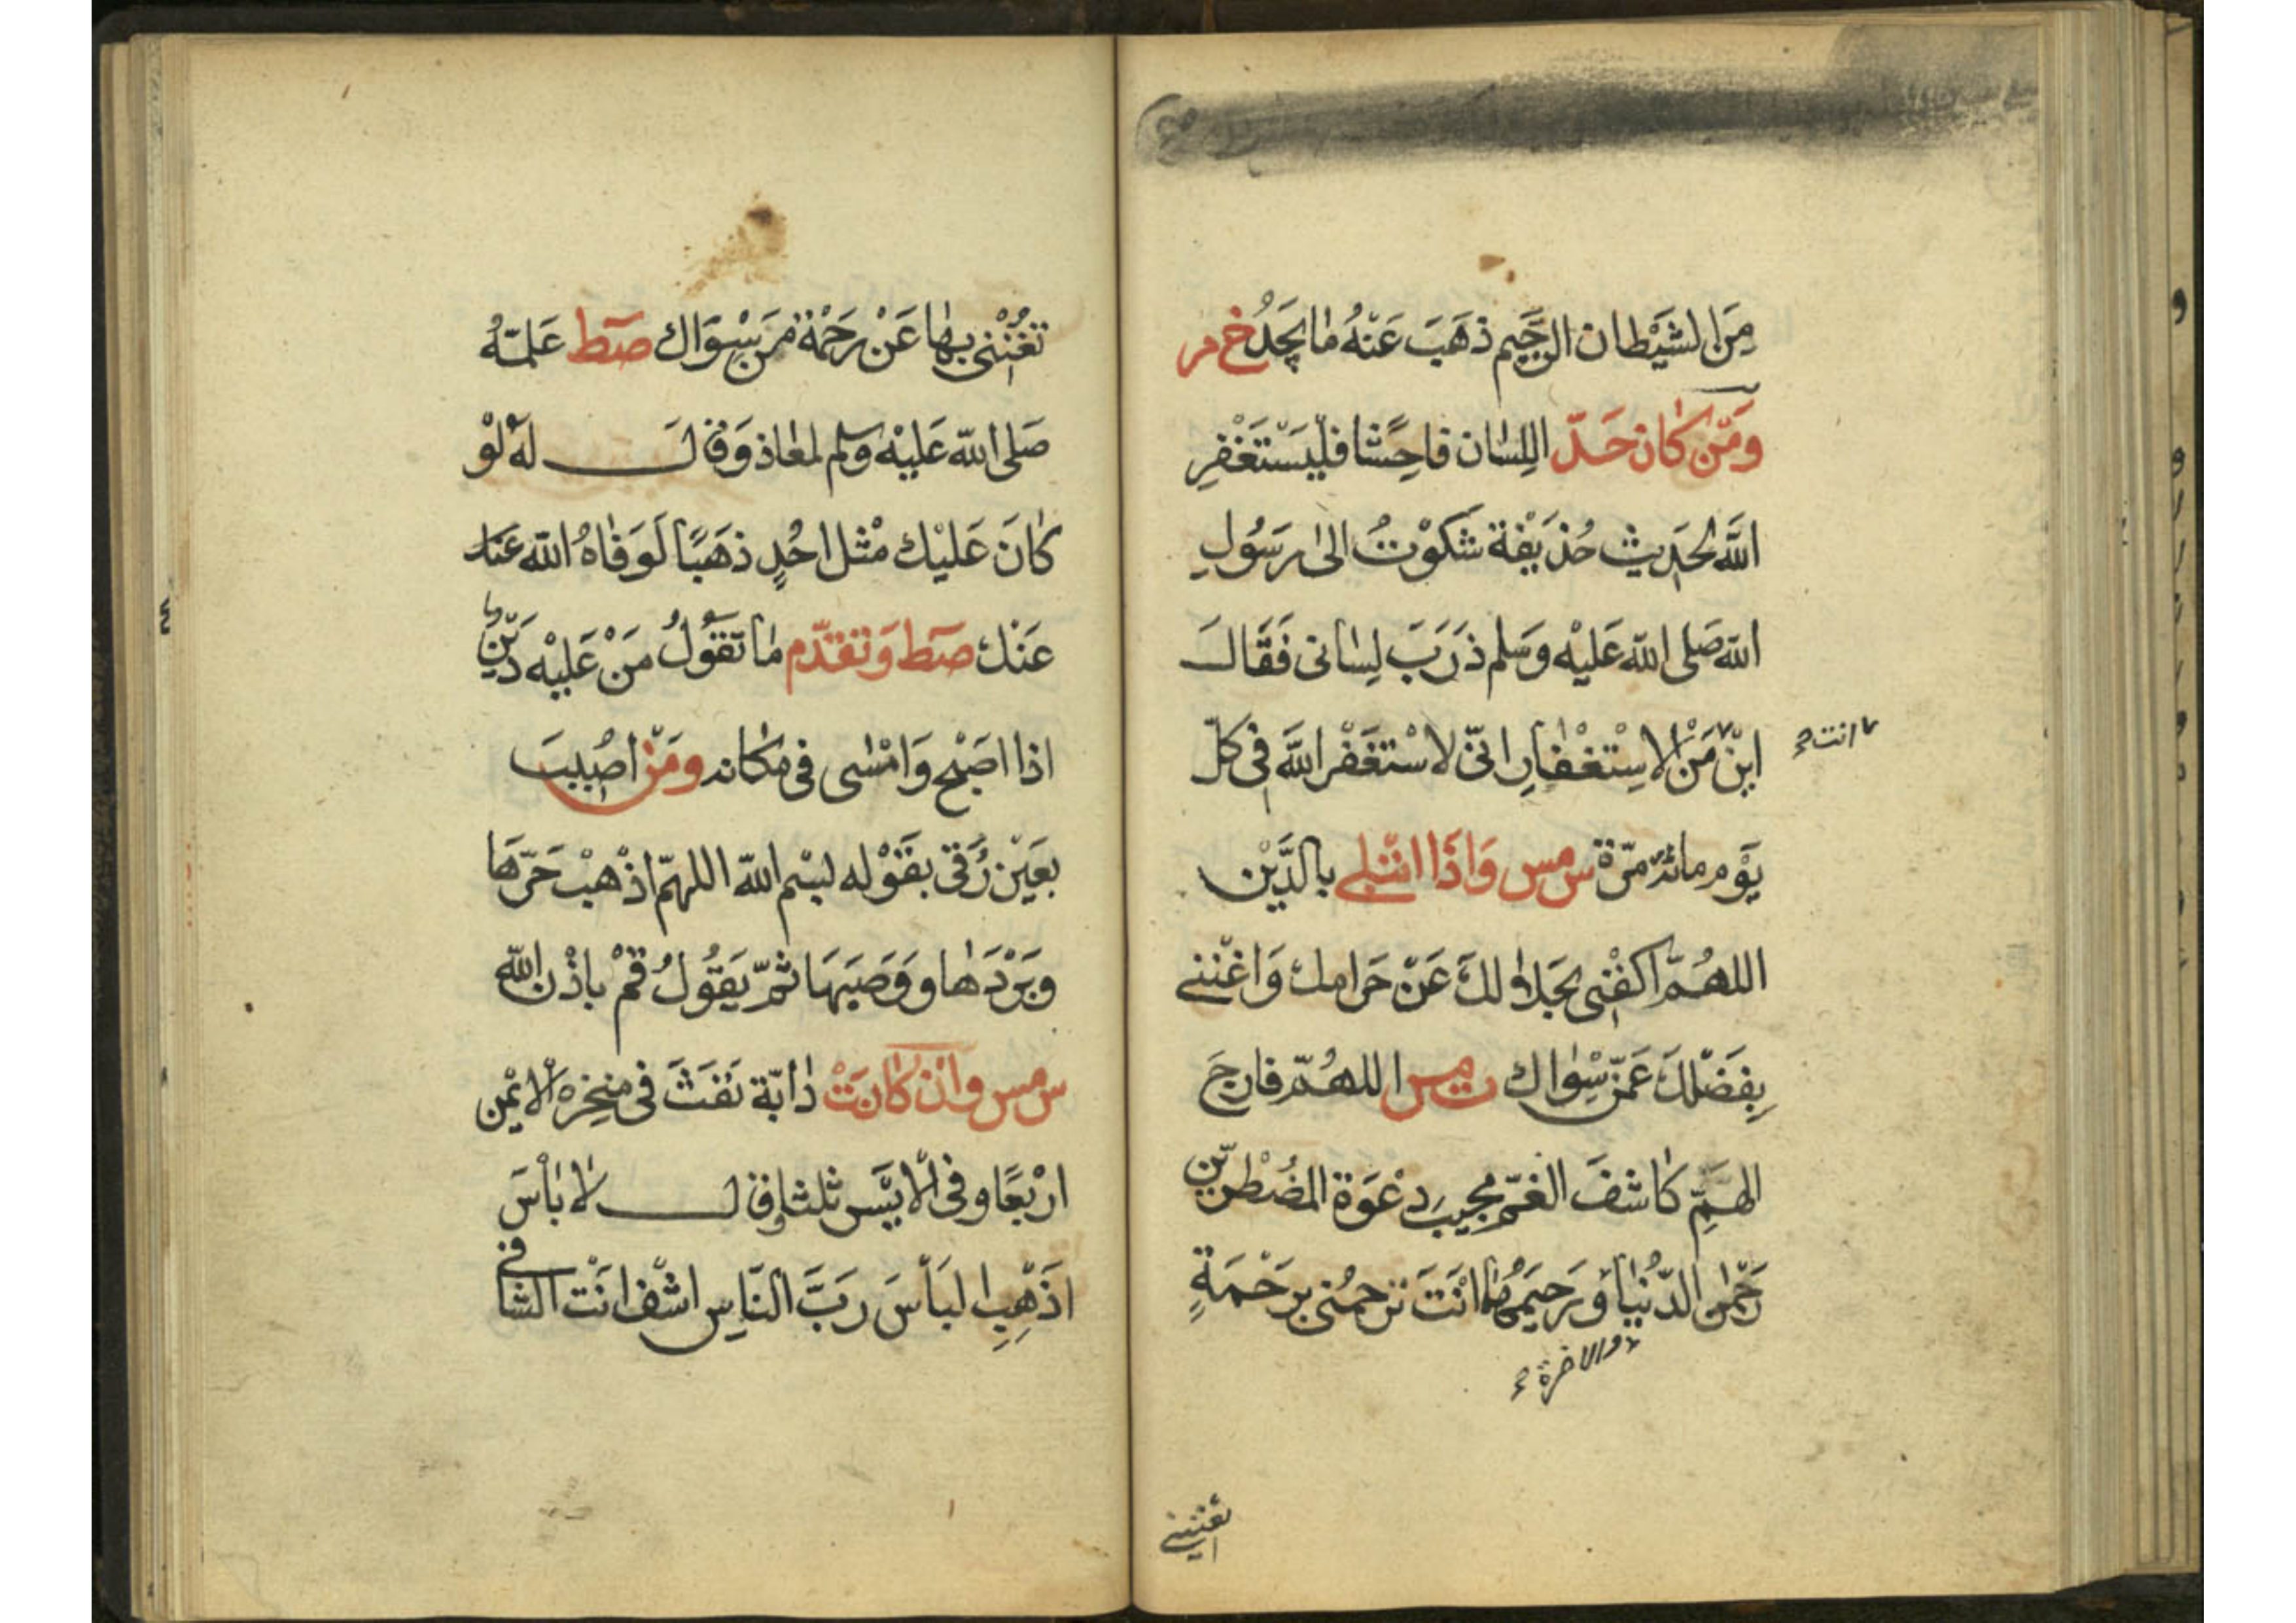 مِنَ الشَيْطان الرَّجَيم ذهَبَ عَنْهُ مٰا يَجَدُ خ م
وَمَنْ كٰان حَدّ اللِسٰان فاحِشًا فلْيَسْتَغْفِرِ
اللَّه لحَدِيث حُذَيْفة شَكَوْتُ الىٰ رَسُولِ
اللّه صَلى اللّه عَليْه وَسَلم ذَرَبَ لِسٰانى فَقَالَ
ايْنَ مَنْ الاسْتغْفٰارِ انّى لاسْتغَفْر اللَّه فِى كلّ
انت صح
يَوْم مائة مرّة س مس وَاذَا ابْتلى بالدَّيْن
اللهُمَّ اكفْنِى بحَلاٰلكَ عَنْ حَرامك وَاغْننى
بِفَضْلكَ عَمّنْ سِوٰاك ت مس اللهُمّ فارجَ
الهَمِّ كٰاشفَ الغَمّ مجِيبَ دعْوَة المضُطْرّين
رَحْمٰن الدّنيٰا وَرَحيَمهُمٰا انْتَ ترحمُنى برَحْمَةٍ
والاخرة صح
تغننى
تغُنْنِى بهٰا عَنْ رَحْمْة مَنْ سِوَاك صط عَلمّهُ
صَلى اللّه عَليْه وسلم لمعٰاذ وَقالَ لهُ لوْ
كٰانَ عَليْك مثْل احُدٍ ذهَبًا لَوَفٰاهُ اللّه عَنكَ
عَنْك صط وَتقدّم مٰا تَقَولُ مَنْ عَليْه دَيْن
اذا اصَبْح وَامْسٰى فى مكٰانه وَمَنْ اصُيبَ
بعَيْن رُقى بقَوْله بسْم اللّه اللهمّ اذْهبْ حَرّهَا
وبَرْدَهٰا ووَصَبَهَا ثمّ يَقُولُ قمْ باذْن اللّه
س مس وانْ كٰانَتْ دٰابّة نَفَثَ فى منخِره الايْمن
ارْبَعًا وفى الايْسَر ثلثا وقال لاٰ بٰأسَ
اذَهِبِ البَأسَ رَبَّ النّاسِ اشْف انْت الشافى